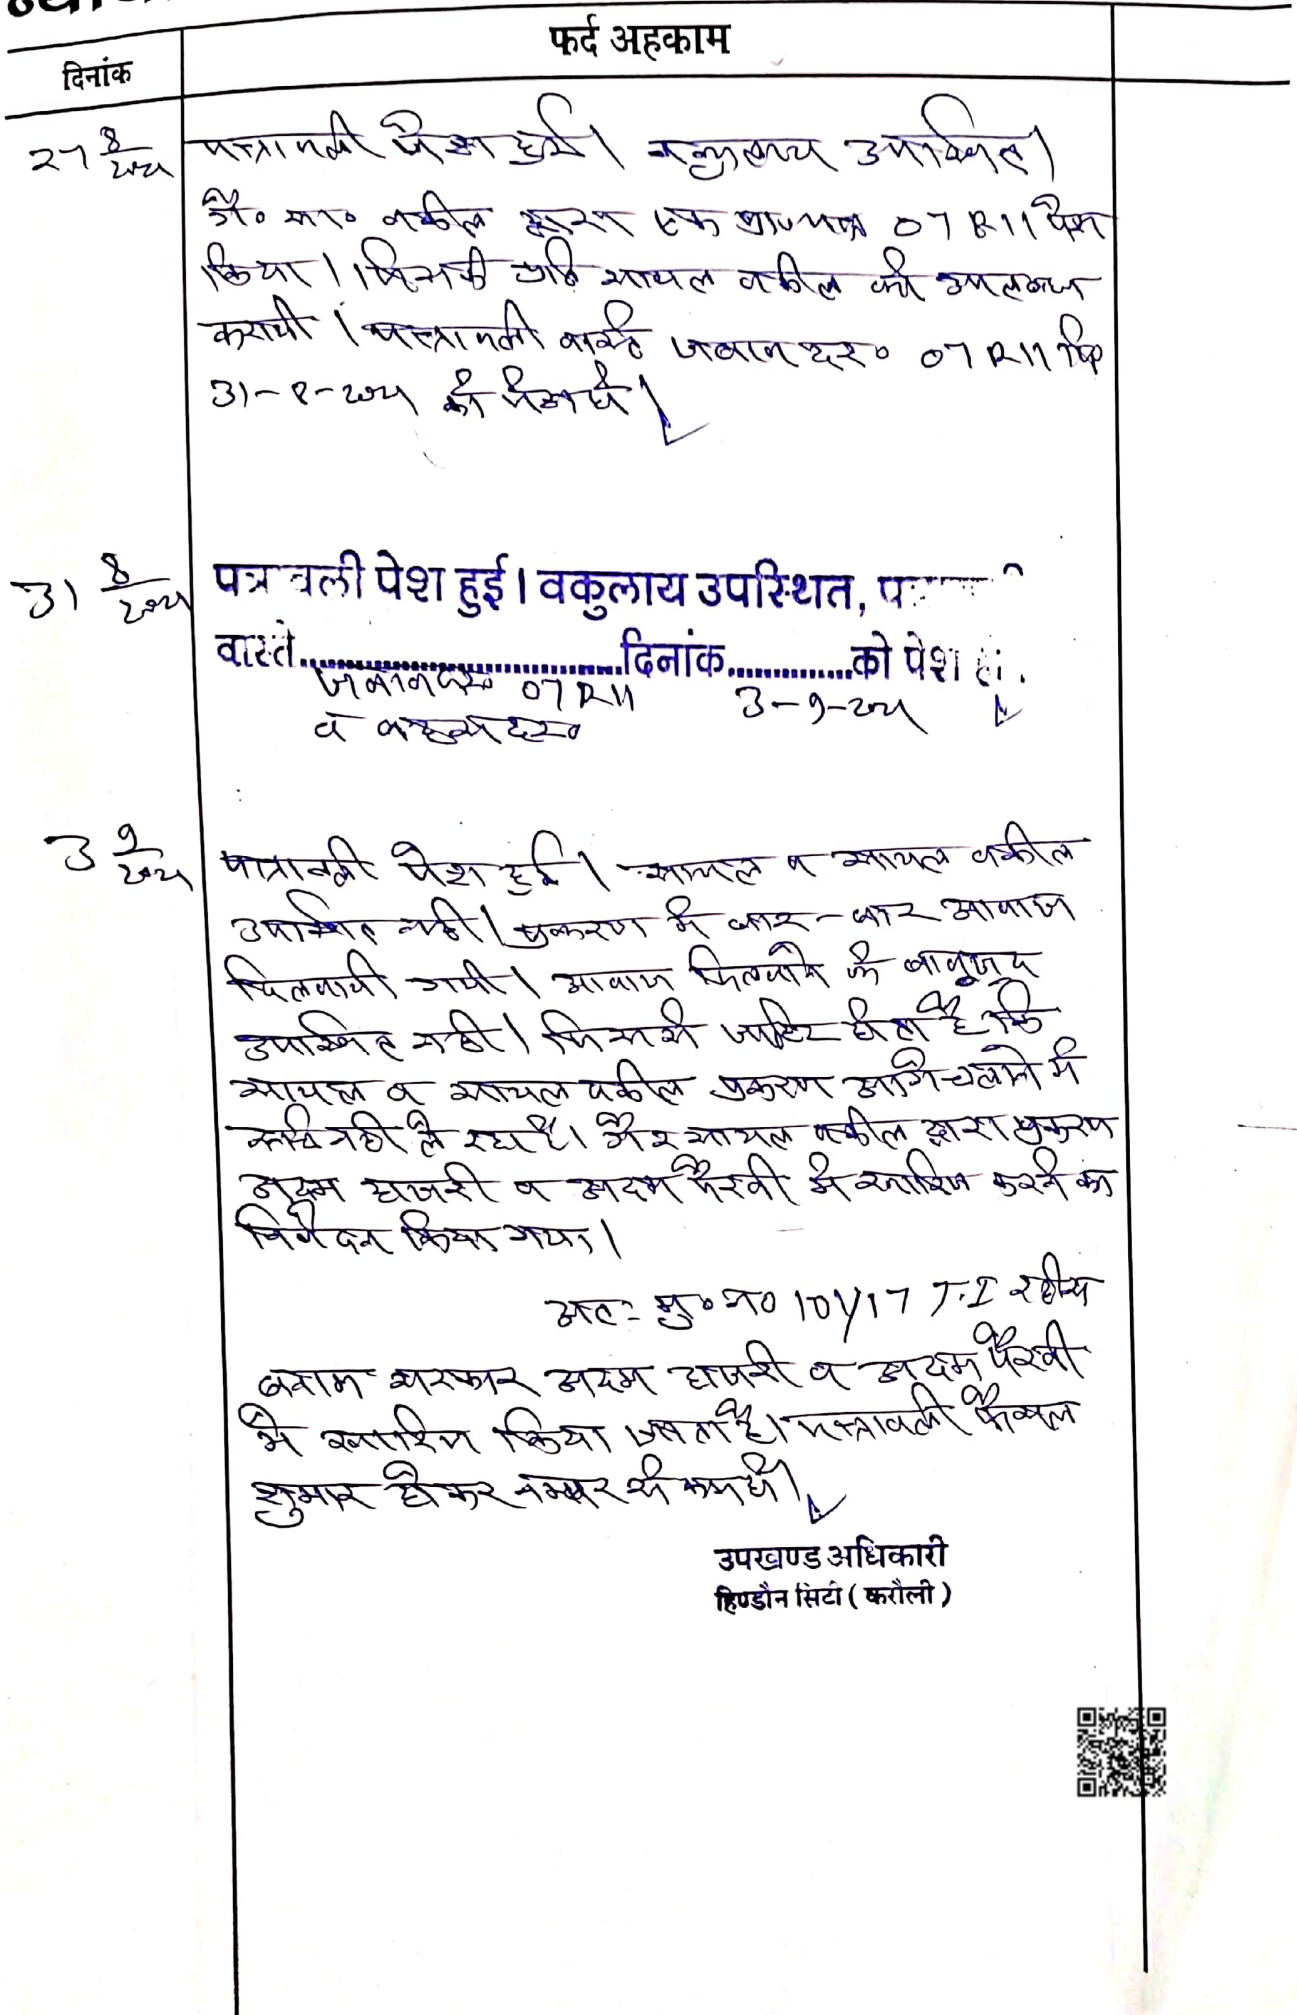 फर्द अहकाम
दिनांक
27 8 पत्रावली पेश हुई। वकुलाय उपस्थित।
गै० सा० वकील द्वारा एक प्रा०पत्र 07 R11 पेश
किया। जिसकी प्रति सायल वकील को उपलब्ध
करायी। पत्रावली वास्ते जवाब दर० 07 R11 दि०
को पेश हो।
31 8 पत्रावली पेश हुई। वकुलाय उपस्थित,
वास्ते..............................दिनांक.............को पेश हो.
जवाब दर० 07 R11 3-9-
व बहस दर०
3 9 पत्रावली पेश हुई। सायल व सायल वकील
उपस्थित नही। प्रकरण में बार-बार आवाज
दिलवायी गयी। आवाज दिलवाने के बावूजूद
उपस्थित नही। जिससे जाहिर होता है कि
सायल व सायल वकील प्रकरण आगे चलाने में
रूचि नही ले रहा है। गैर सायल वकील द्वारा प्रकरण
अदम हाजरी व अदम पैरवी मे खारिज करने का
निवेदन किया गया।
अतः मु०न० 101/17 T.I
बनाम सरकार अदम हाजरी व अदम पैरवी
मे खारिज किया जाता है। पत्रावली फैसल
शुमार होकर नम्बर से कम हो।
उपखण्ड अधिकारी
हिण्डौन सिटी ( करौली )